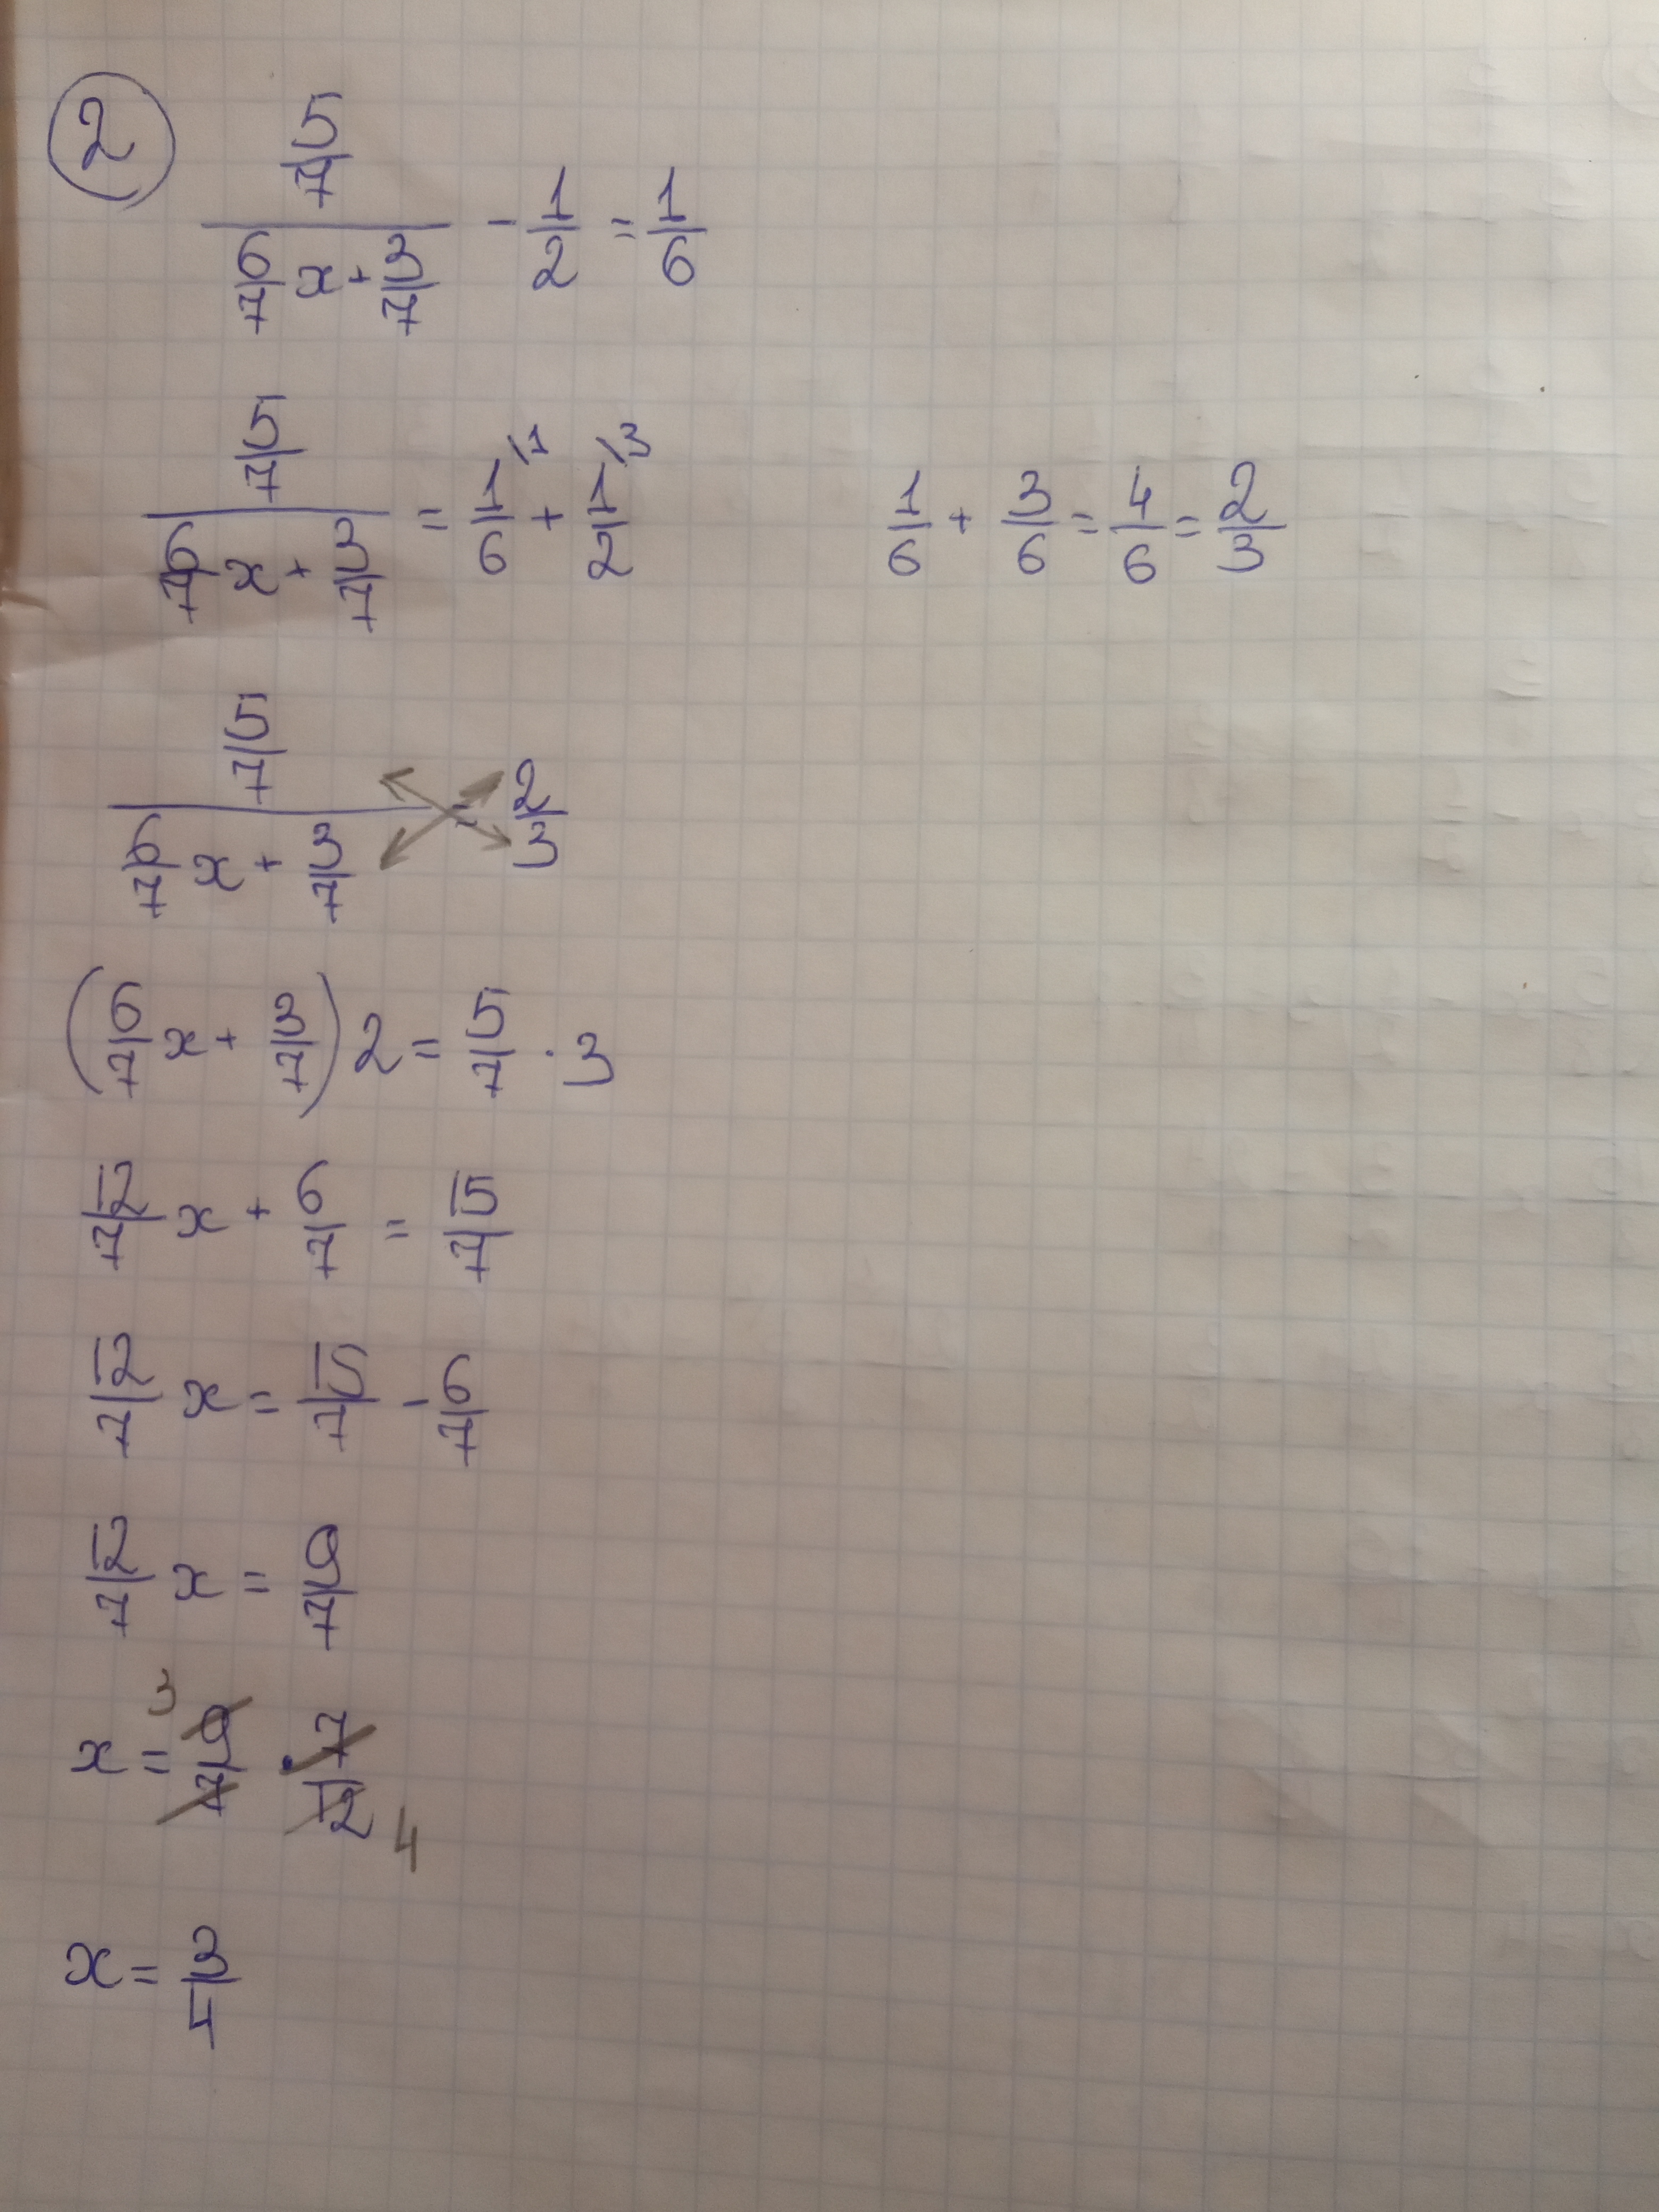 2
(5/7)/(6/7 x + 3/7) - 1/2 = 1/6
(5/7)/(6/7 x + 3/7) = 1/6 \1 + 1/2 \3    1/6 + 3/6 = 4/6 = 2/3
(5/7)/(6/7 x + 3/7) = 2/3
(6/7 x + 3/7) 2 = 5/7 · 3
12/7 x + 6/7 = 15/7
12/7 x = 15/7 - 6/7
12/7 x = 9/7
x = 3 9/7 · 7/12 4
x = 3/4